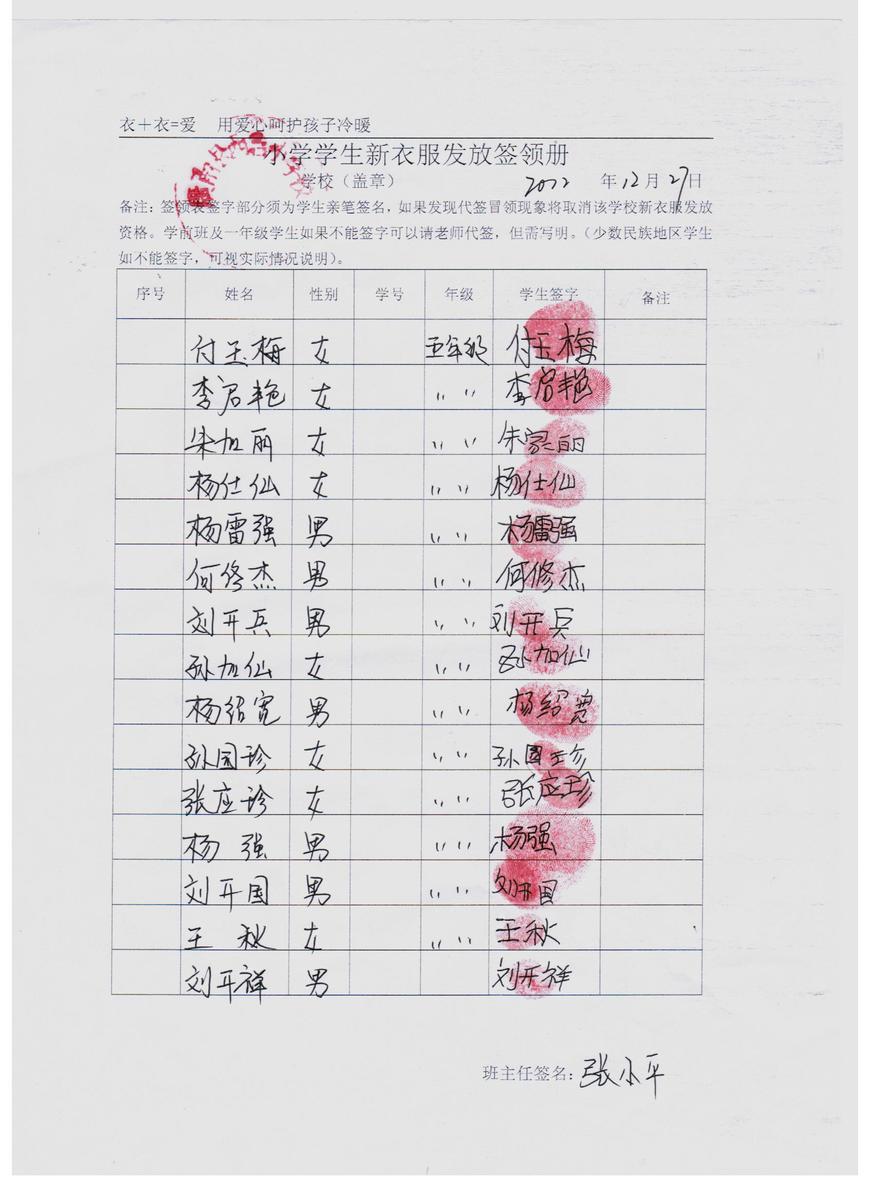 衣+衣=爱 用爱心呵护孩子冷暖
小学学生新衣服发放签领册
学校（盖章） 2012 年12月27日
备注：签领表签字部分须为学生亲笔签名，如果发现代签冒领现象将取消该学校新衣服发放
资格。学前班及一年级学生如果不能签字可以请老师代签，但需写明。（少数民族地区学生
如不能签字，可视实际情况说明）。
序号 姓名 性别 学号 年级 学生签字 备注
付玉梅 女 五年级 付玉梅
李启艳 女 〃 〃 李启艳
朱加丽 女 〃 〃 朱家丽
杨仕仙 女 〃 〃 杨仕仙
杨雷强 男 〃 〃 杨雷强
何修杰 男 〃 〃 何修杰
刘开兵 男 〃 〃 刘开兵
孙加仙 女 〃 〃 孙加仙
杨绍宽 男 〃 〃 杨绍宽
孙国珍 女 〃 〃 孙国珍
张应珍 女 〃 〃 张应珍
杨 强 男 〃 〃 杨强
刘开国 男 〃 〃 刘开国
王 秋 女 〃 〃 王秋
刘开祥 男 刘开祥
班主任签名：张小平